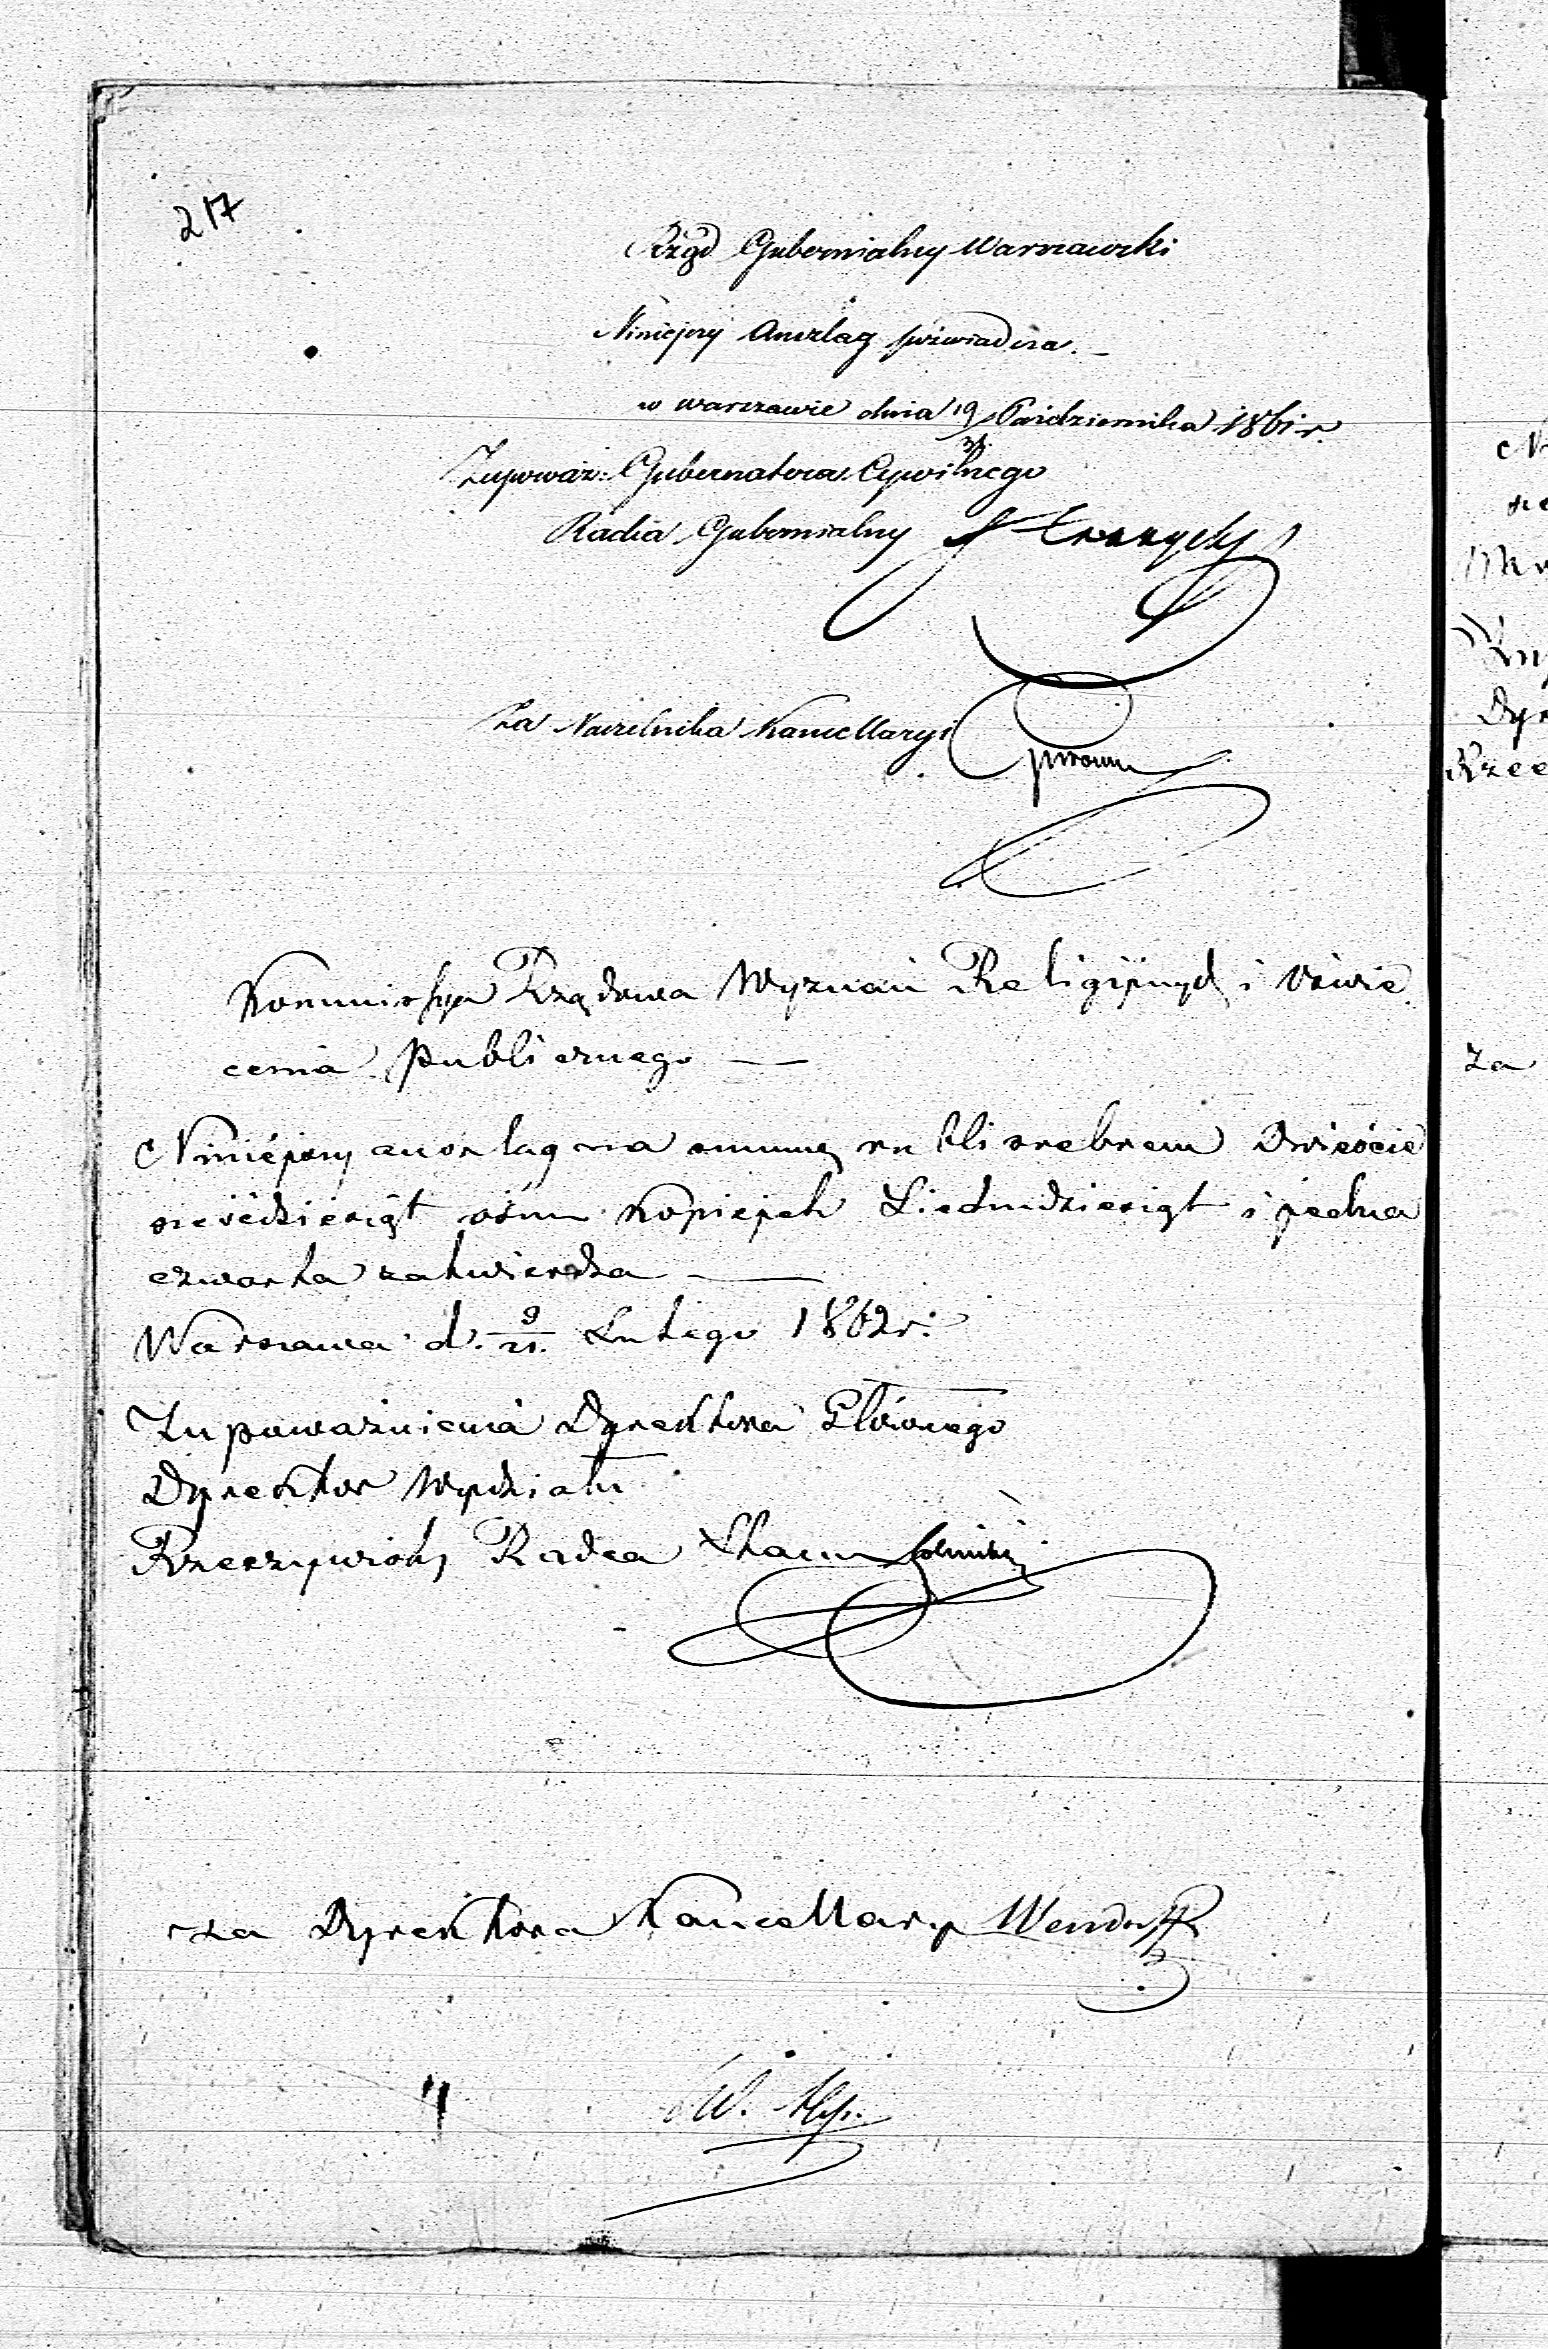 217
Rząd Gubernialny Warszawski
Niniejszy Anszlag poświadcza.
w Warszawie dnia 19/31 Października 1861 r.
Zupoważ: Gubernatora Cywilnego
Radca Gubernialny
Za Naczelnika Kancellaryi
Kommissya Rządowa Wyznań Religijnych i Oświe
cenia Publicznego —
Niniejszy anszlag na summę rubli srebrem Dwieście
sześćdziesiąt ośm kopiejek Siedmdziesiąt i jedna
czwarta zatwierdza —
Warszawa d. 9/21. Lutego 1862 r.
Zupoważnienia Dyrektora Głównego
Dyrektor Wydziału
Rzeczywisty Radca Stanu
za Dyrektora Kancellaryi Wendorff
Za